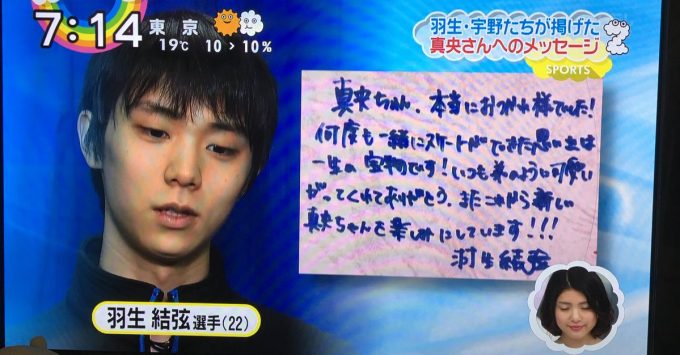 7:14
東京
19℃ 10 > 10%
羽生・宇野たちが掲げた
真央さんへのメッセージ
SPORTS
真央ちゃん、本当におつかれ様でした!
何度も一緒にスケートができた思い出は
一生の宝物です!いつも弟のように可愛い
がってくれてありがとう。またこれから新しい
真央ちゃんを楽しみにしています!!!
羽生結弦
羽生 結弦選手(22)